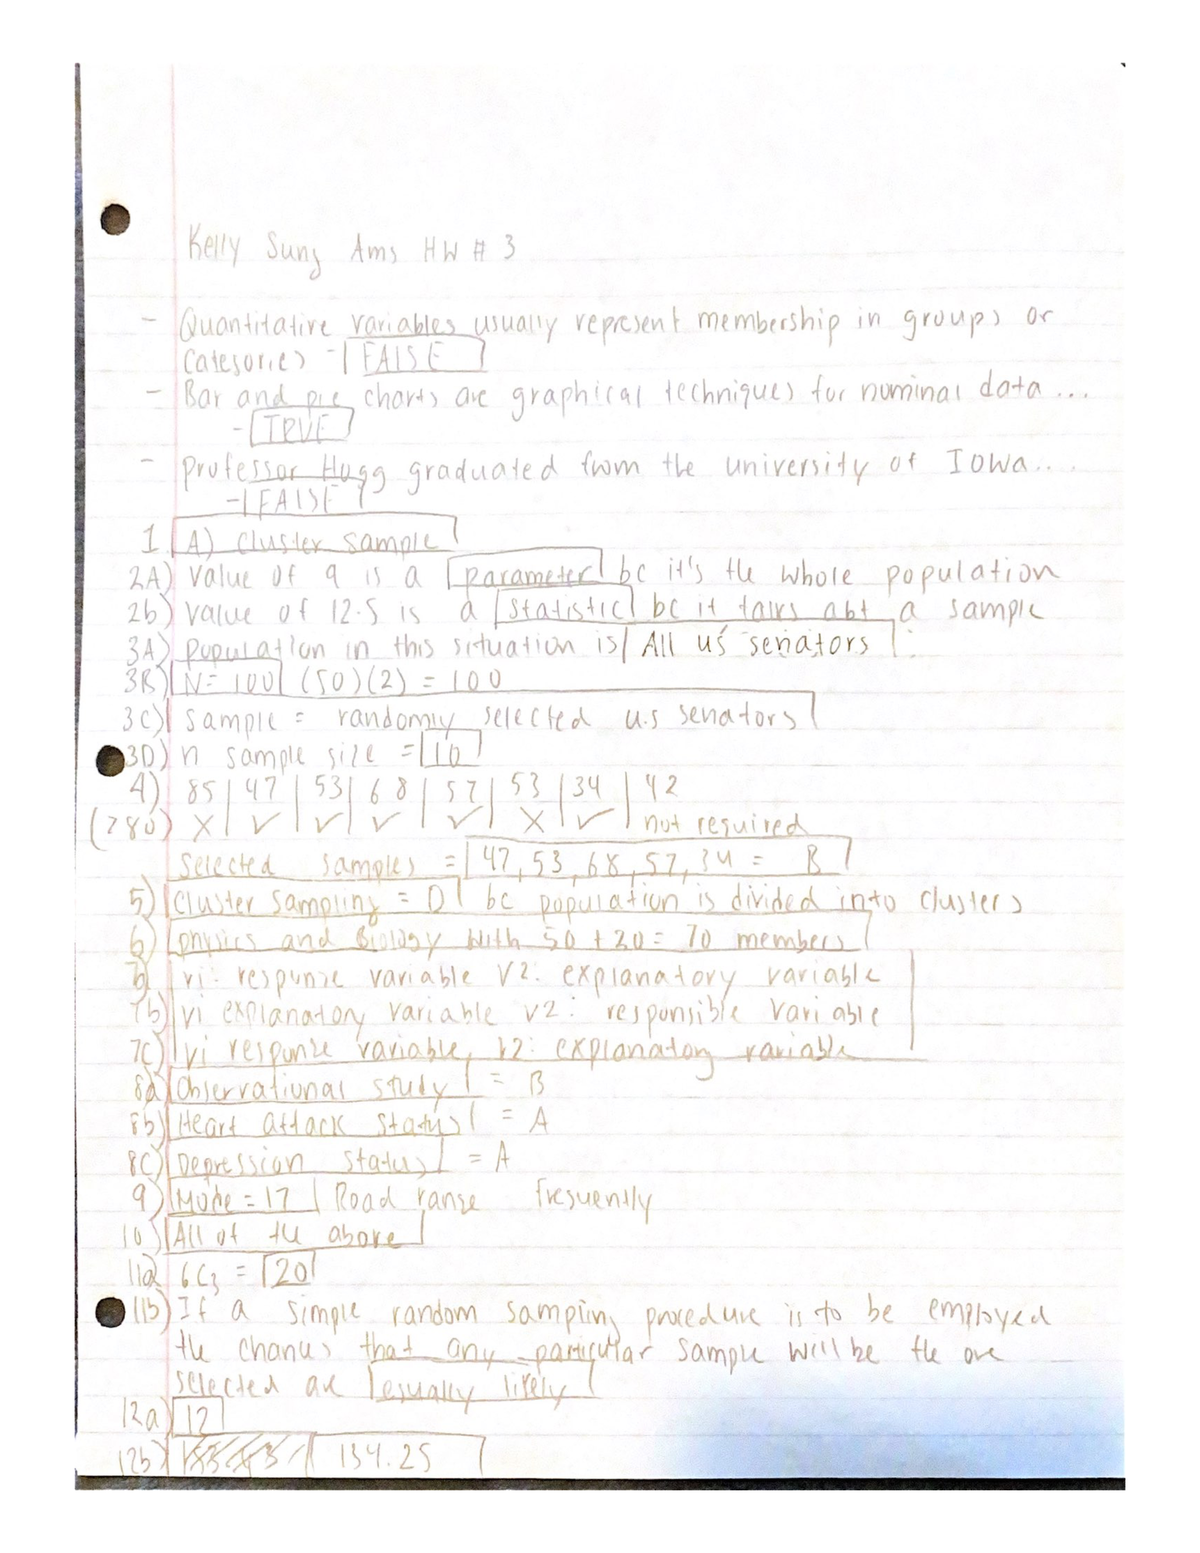 Kelly Sung Ams HW # 3
- Quantitative variables usually represent membership in groups or
Categories - FALSE
- Bar and pie charts are graphical techniques for nominal data ...
- TRUE
- Professor Hogg graduated from the university of Iowa...
- FALSE
1. A) cluster sample
2A) Value of 9 is a parameter bc it's the whole population
2b) Value of 12.5 is a statistic bc it talks abt a sample
3A) Population in this situation is All us senators
3B) N = 100 (50)(2) = 100
3C) Sample = randomly selected u.s senators
3D) n sample size = 10
4) 85 | 47 | 53 | 68 | 57 | 53 | 34 | 42
(280) X | ✓ | ✓ | ✓ | ✓ | X | ✓ | not required
Selected samples = 47, 53, 68, 57, 34 = B
5) Cluster Sampling = D bc population is divided into clusters
6) physics and Biology with 50 + 20 = 70 members
v1: response variable V2: explanatory variable
7b) v1 explanatory variable v2: responsible variable
7C) v1 response variable, v2: explanatory variable
8a) Observational study = B
8b) Heart attack status = A
8C) Depression status = A
9) Mode = 17 Road range frequently
10) All of the above
11a) 6C3 = 20
11b) If a simple random sampling procedure is to be employed
the chances that any particular sample will be the one
selected are equally likely
12a) 12
12b) 134.25